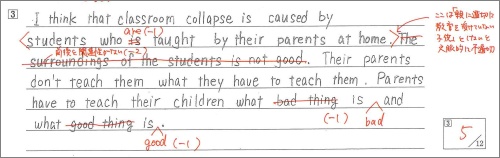 3 I think that classroom collapse is caused by
are(-1)
students who is taught by their parents at home. The
前後と関連性がない(-2)
surroundings of the students is not good. Their parents
don't teach them what they have to teach them. Parents
have to teach their children what bad thing is and
(-1) bad
what good thing is.
good (-1)
ここは「親に適切な
教育を受けていない
子供」としないと
文脈的に不適切
3
5/12